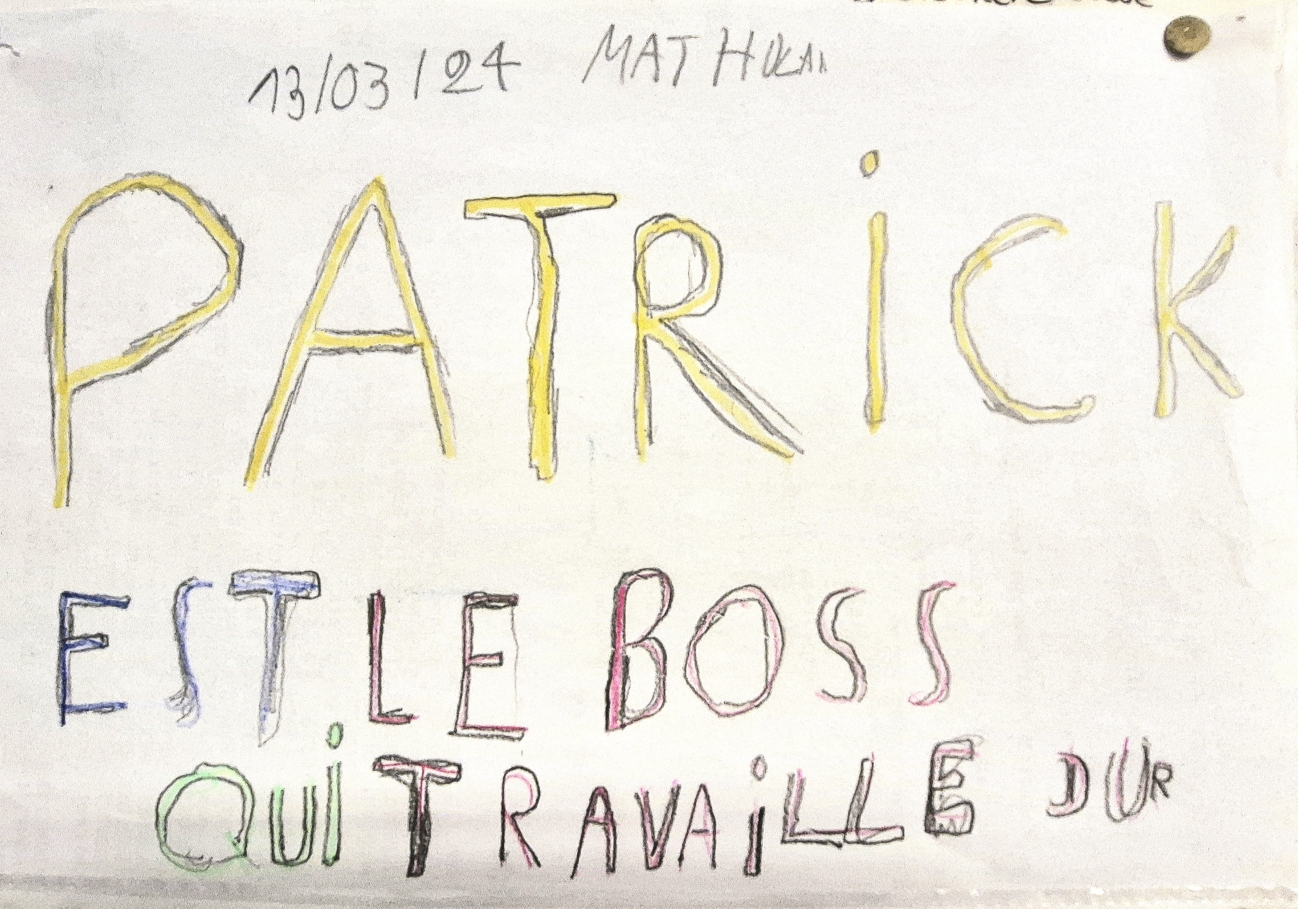 13/03/24
PATRiCK
EST LE BOSS
QUi TRAVAiLLE DUR